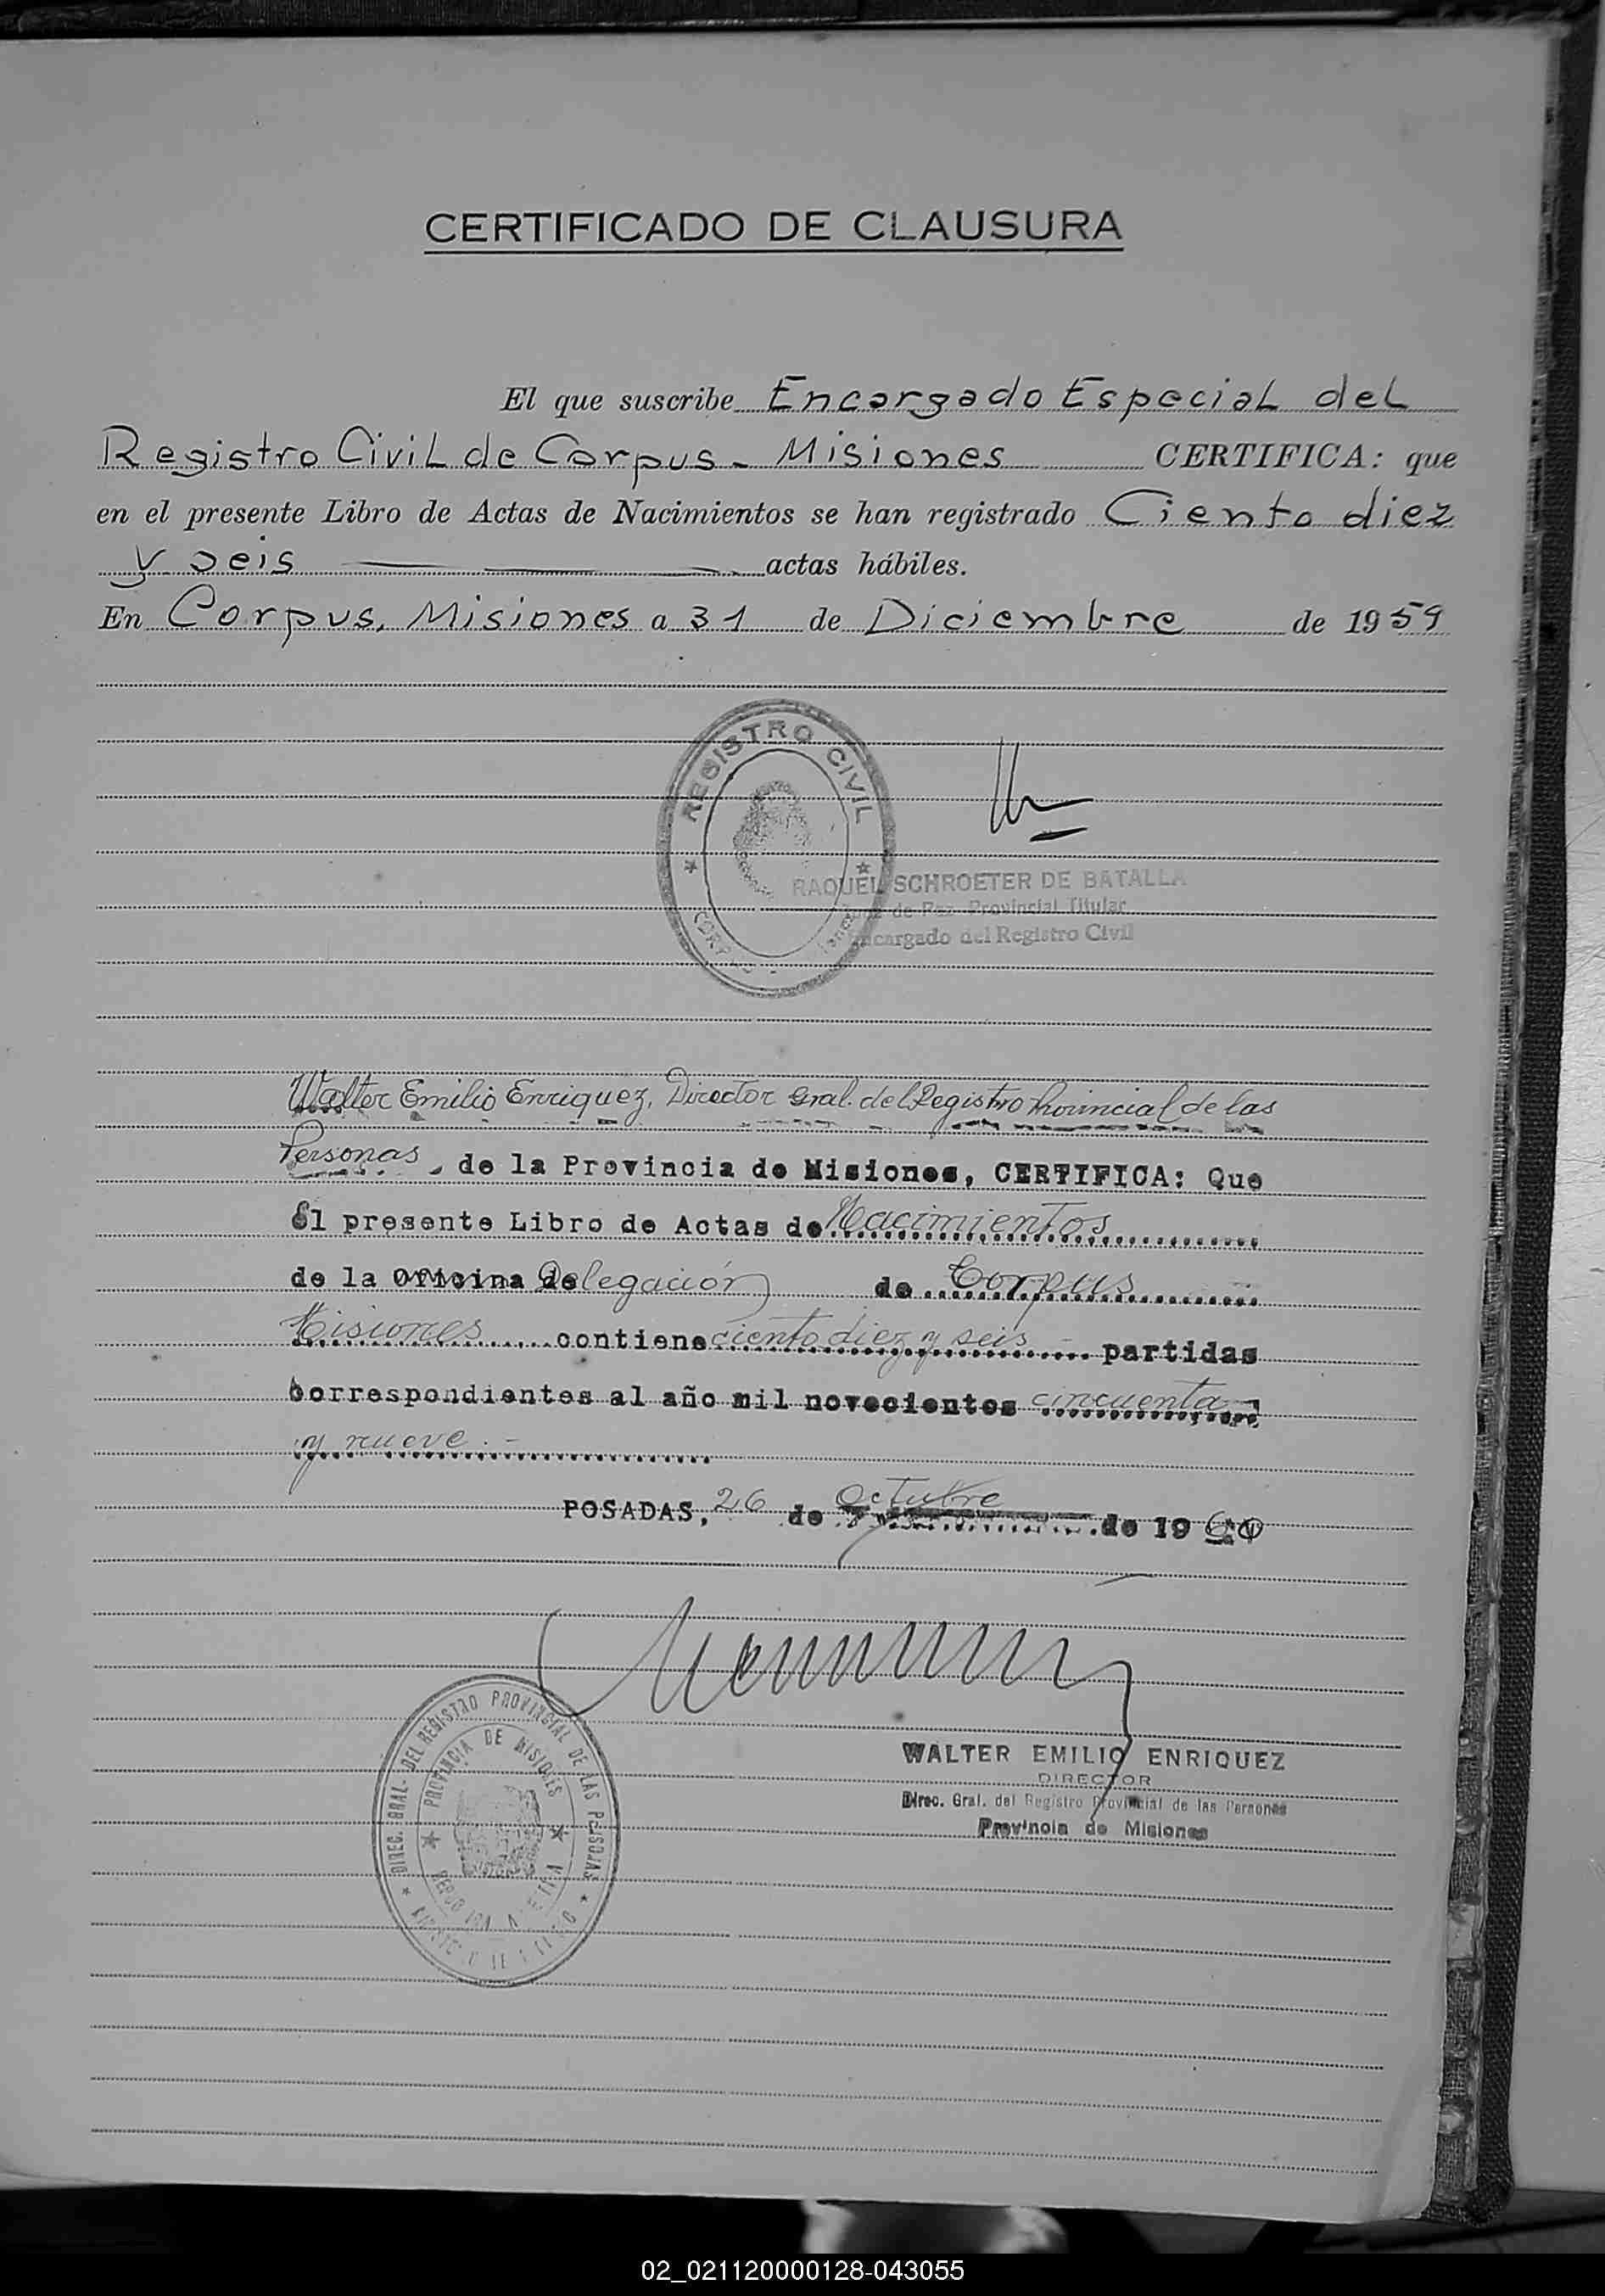 CERTIFICADO DE CLAUSURA
El que suscribe Encargado Especial del
Registro Civil de Corpus - Misiones CERTIFICA: que
en el presente Libro de Actas de Nacimientos se han registrado Ciento diez
y seis actas hábiles.
En Corpus, Misiones a 31 de Diciembre de 1959
REGISTRO CIVIL
RAQUEL SCHROETER DE BATALLA
de Paz Provincial Titular
Encargado del Registro Civil
Walter Emilio Enriquez, Director Gral. del Registro Provincial de las
Personas, de la Provincia de Misiones, CERTIFICA: Que
El presente Libro de Actas de Nacimientos
de la Oficina de Delegación de Corpus
Misiones contiene ciento diez y seis - partidas
correspondientes al año mil novecientos cincuenta
y nueve.-
POSADAS, 26 de Octubre de 1960
DIREC. GRAL. DEL REGISTRO PROVINCIAL DE LAS PERSONAS
PROVINCIA DE MISIONES
WALTER EMILIO ENRIQUEZ
DIRECTOR
Direc. Gral. del Registro Provincial de las Personas
Provincia de Misiones
02_021120000128-043055